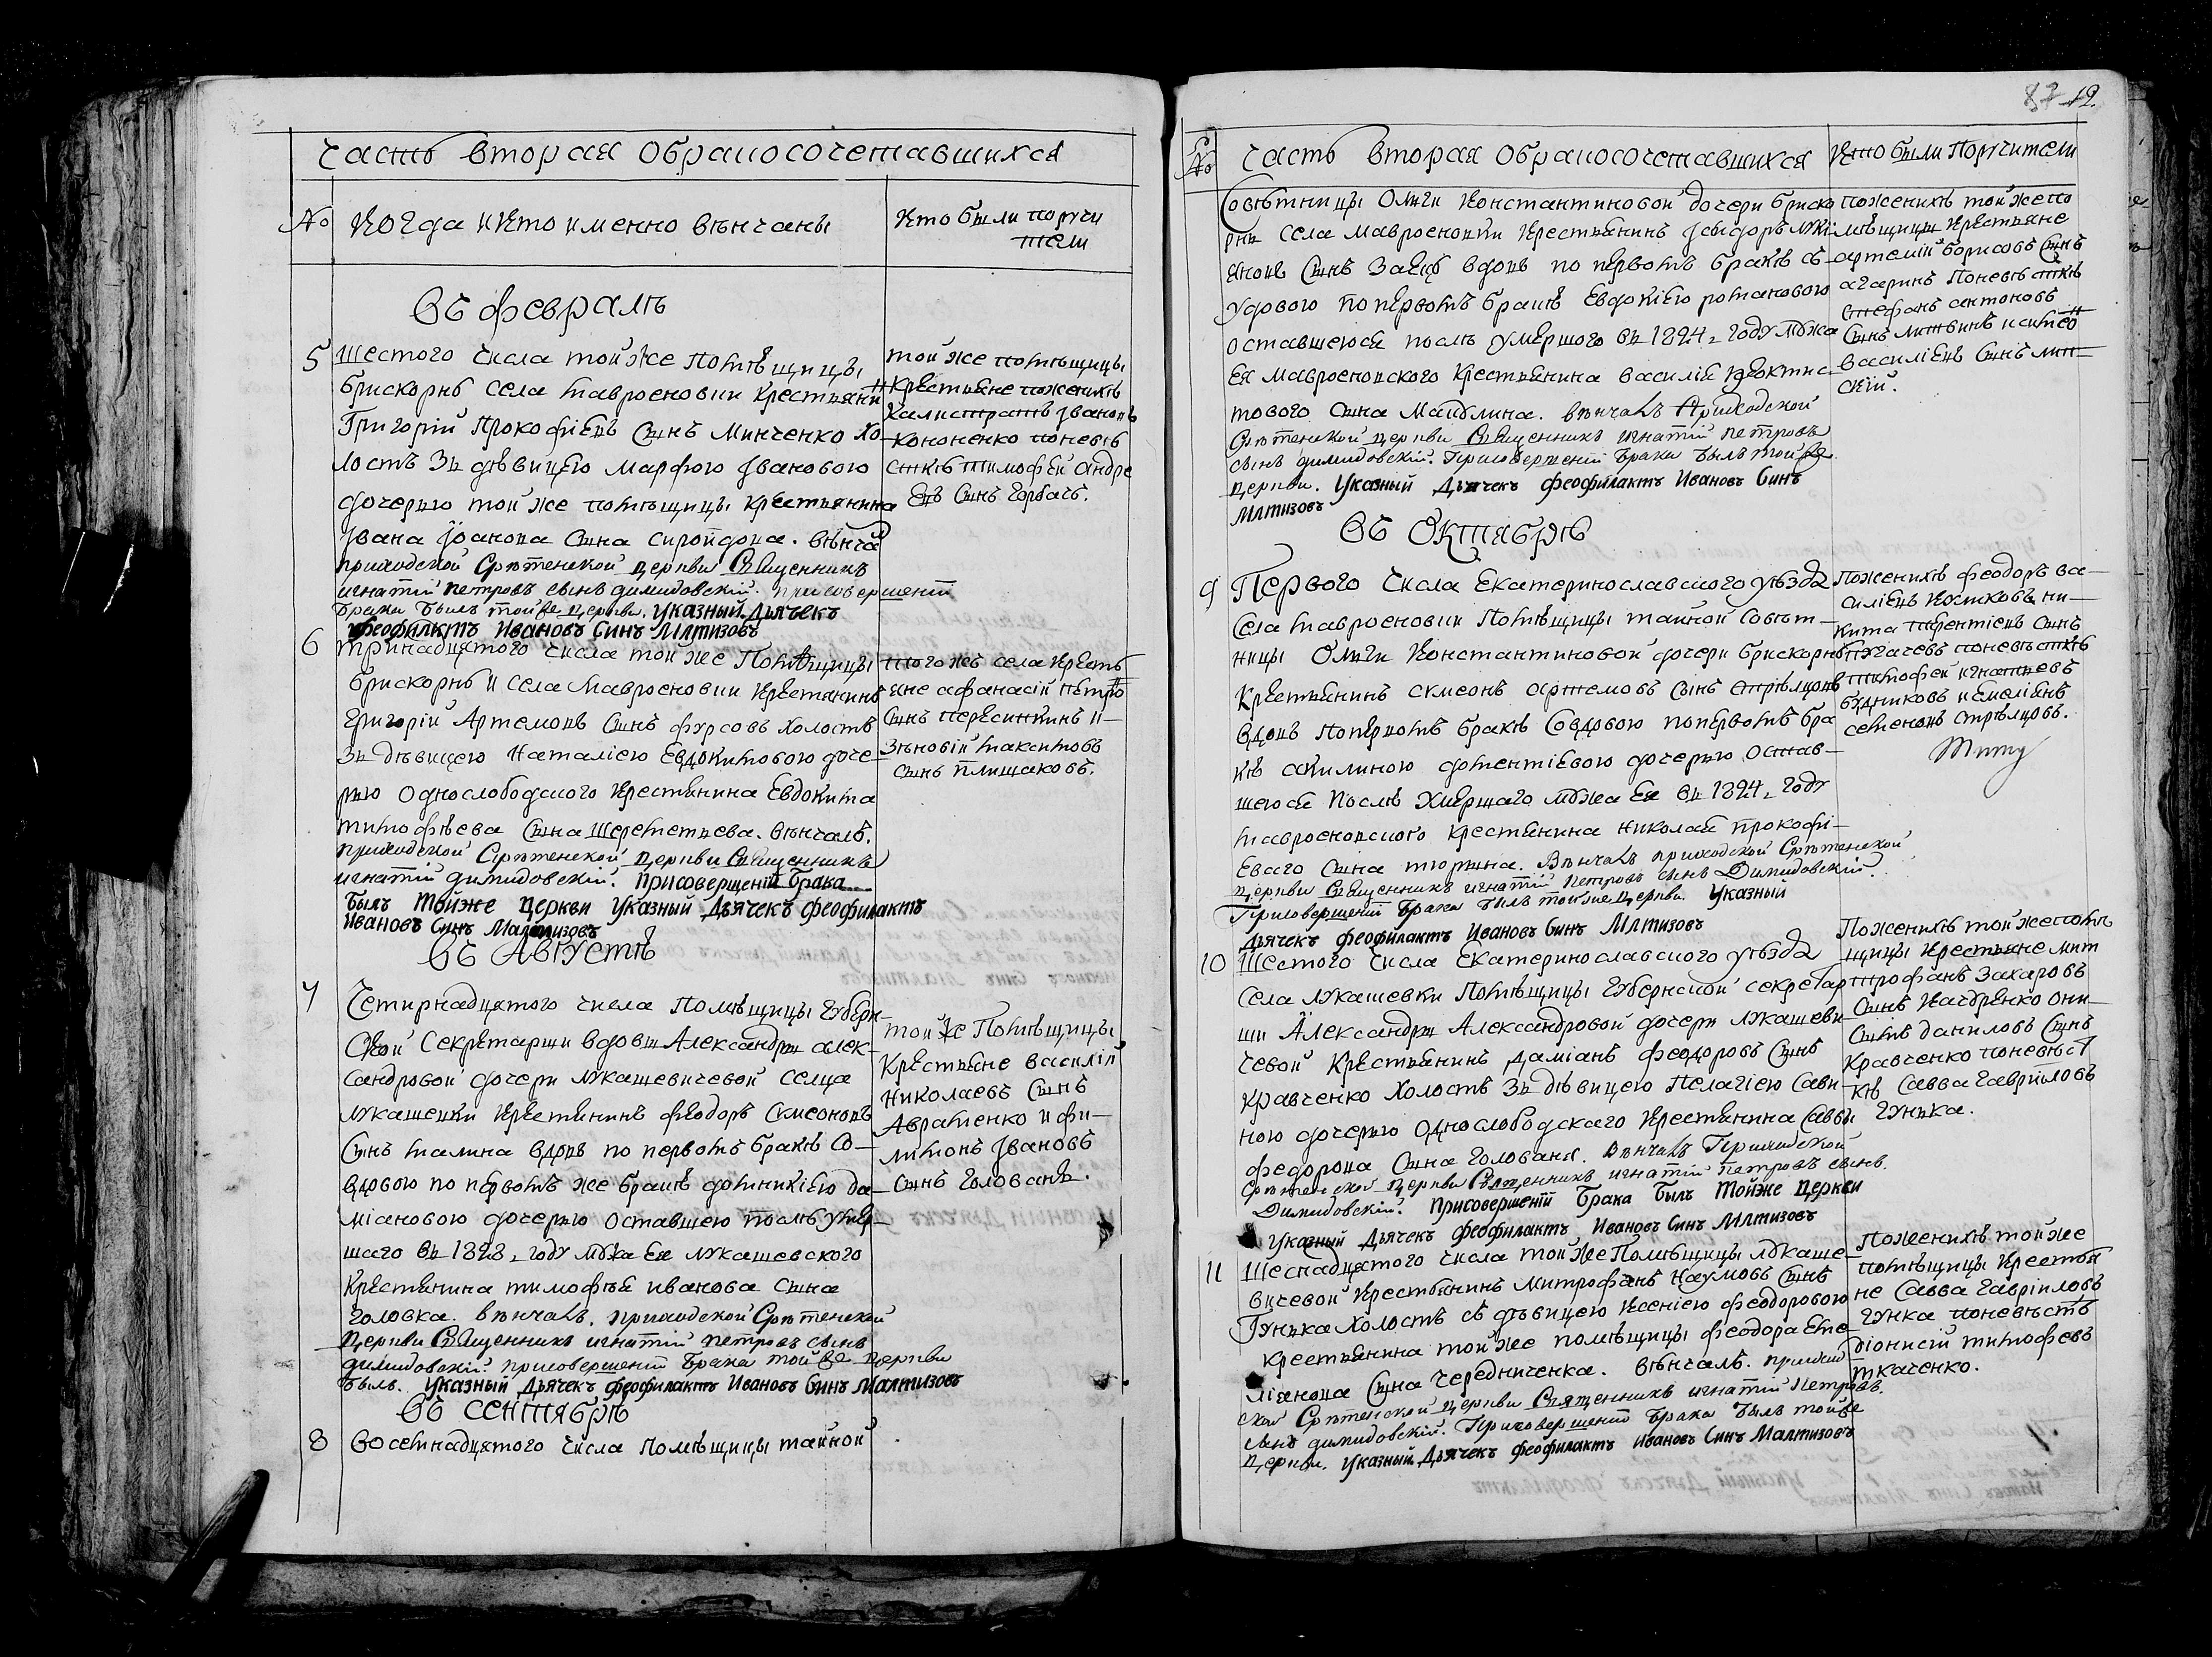 Часть вторая обракосочетавшихся
№ Когда и кто именно вѣнчаны
Кто были поручи
тели
Въ февралѣ
5 Шестого числа той же помѣщицы
Брискорнъ села мавроеновки крестьянинъ
Григорій Прокофіевъ сынъ Минченко хо-
лостъ зъ дѣвицею Марфою Івановою
дочерью той же помѣщицы крестьянина
Івана сына . вѣнча
приходской Срѣтенской церкви Священникъ
игнатій петровъ сынъ димидовскій. присовершеніи
брака былъ тойже церкви указный дьячекъ
феофилактъ Ивановъ Синъ Млтизовъ
той же помѣщицы
крестьяне поженихѣ
калистратъ Івановъ
кононенко поневѣ
сткѣ тимофей андре
евъ сынъ горбачъ.
6 тринадцятого числа той же Помѣщицы
брискорнъ и села мавроеновки крестянинъ
григорій Артемовъ сынъ фурсовъ холостъ
зъ дѣвицею наталіею Евдокимовою доче-
рью однослободского крестянина Евдокима
тимофѣева сына шереметьева. вѣнчалъ.
приходской Срѣтенской церкви Священникъ
игнатій димидовскій. присовершеніи брака
былъ тойже церкви указный Дьячекъ феофилактъ
Ивановъ Синъ Малтизовъ
тогожъ села крестъ
яне афанасій петро
сынъ пересинкинъ и-
зѣновій максимовъ
сынъ плищаковъ.
Въ Августѣ
7 Четирнадцятого числа Помѣщицы губерн-
ской секретарши вдовы Александры алек-
сандровой дочери лукашевичевой селца
лукашевки крестянинъ феодоръ симеоновъ
сынъ малина вдовъ по первомъ бракѣ со-
вдовою по первомъ же бракѣ домникіею да-
міановою дочерью оставшею послѣ умер-
шаго въ 1823, году мужа ея лукашевского
крестянина тимофѣя иванова сына
головка. вѣнчалъ. приходской Срѣтенской
церкви Священникъ игнатій петровъ сынъ
димидовскій присовершеніи брака тойже церкви
былъ. указный дьячекъ феофилактъ Ивановъ Синъ Малтизовъ
той же Помѣщицы
крестьяне василій
николаевъ сынъ
Авраменко и фи-
лимонъ Івановъ
сынъ голованъ.
Въ сентябрѣ
8 Восемнадцятого числа помѣщицы тайной
87 12.
№ Часть вторая обракосочетавшихся Кто были Поручители
Совѣтницы Олги Константиновой дочери бриско
рнъ села мавроеновки крестьянинъ Ісидоръ луки
яновъ сынъ заецъ вдовъ по первомъ бракѣ съ
удовою по первомъ бракѣ Евдокіею романовою
оставшеюся послѣ умершого въ 1824, году мужа
ея мавроеновского крестьянина василія
тового сына . вѣнчалъ приходской
Срѣтенской церкви Священникъ игнатій петровъ
сынъ димидовскій. присовершеніи брака былъ тойже
церкви. указный Дьячекъ феофилактъ Ивановъ Синъ
Млтизовъ
поженихѣ той же по
мѣщицы крестьяне
артемій борисовъ сынъ
агаринъ поневѣсткѣ
стефанъ антоновъ
сынъ литвинъ и
василіевъ сынъ лин-
скій.
Въ Октябрѣ
9 Первого числа Екатеринославского уѣзда
села мавроеновки Помѣщицы тайной совѣт-
ницы Олги Константиновой дочери брискорнъ
крестьянинъ симеонъ артемовъ сынъ стрѣлцовъ
вдовъ по первомъ бракѣ со вдовою по первомъ бра
кѣ акилиною дометіевою дочерью остав-
шеюся послѣ умершаго мужа ея въ 1824, году
мавроеновского крестянина николая прокофі-
еваго сына тюрина. Вѣнчалъ приходской Срѣтенской
церкви Священникъ игнатій петровъ сынъ Димидовскій.
Присовершеніи брака былъ тойже церкви. указный
Дьячекъ феофилактъ Ивановъ Синъ Млтизовъ
Поженихѣ феодоръ ва-
силіевъ ни-
кита терентіевъ сынъ
пугачевъ поневѣсткѣ
тимофей игнатиевъ
будниковъ и емеліянъ
семеновъ стрѣлцовъ.
10 Шестого числа Екатеринославского уѣзда
села лукашевки Помѣщицы губернской секретар
ши Александры Александровой дочери лукашеви
чевой крестьянинъ даміанъ феодоровъ сынъ
кравченко холостъ зъ дѣвицею Пелагіею сави-
ною дочерью однослободскаго крестянина савы
федорова сына голованя. вѣнчалъ Приходской
Срѣтенской церкви Священникъ игнатій петровъ сынъ.
Димидовскій. присовершеніи брака былъ тойже церкви
указный Дьячекъ феофилактъ Ивановъ Синъ Млтизовъ
Поженихѣ той же помѣ
щицы крестьяне мит
трофанъ захаровъ
сынъ они-
симъ даниловъ сынъ
кравченко поневѣст
кѣ савва гавриловъ
гунка.
11 Шеснадцятого числа той же Помѣщицы лукаше-
вичевой крестьянинъ митрофанъ наумовъ сынъ
гунька холостъ съ дѣвицею ксеніею феодоровою
крестьянина той же помѣщицы феодора еме-
ліянова сына чередниченка. вѣнчалъ. приход
ской Срѣтенской церкви Священникъ игнатій петровъ.
сынъ димидовскій. Присовершеніи брака былъ тойже
церкви. указный Дьячекъ феофилактъ Ивановъ Синъ Малтизовъ
Поженихѣ той же
помѣщицы крестья
не савва гавріиловъ
гунка поневѣстѣ
діонисій тимофевъ
ткаченко.